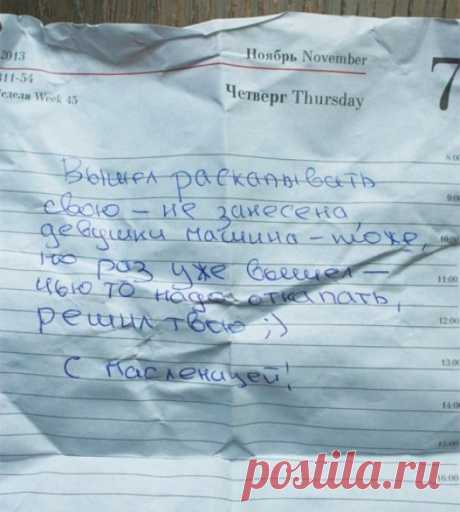 2013
Ноябрь November
311-54
неделя Week 45
Четверг Thursday
7
8:00
Вышел раскапывать
9:00
свою - не занесена
девушки машина - тоже,
10:00
но раз уже вышел -
11:00
чью то надо откапать,
12:00
решил твою ;)
13:00
С Масленицей!
14:00
15:00
16:00
postila.ru